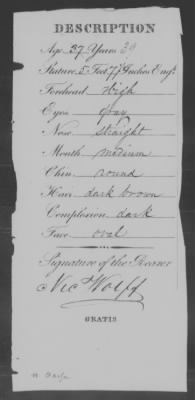 DESCRIPTION
Age 37 Years
Stature 5 Feet 7½ Inches Eng.
Forehead High
Eyes Gray
Nose straight
Mouth medium
Chin round
Hair dark brown
Complexion dark
Face oval
Signature of the Bearer
Nic Wolff
GRATIS